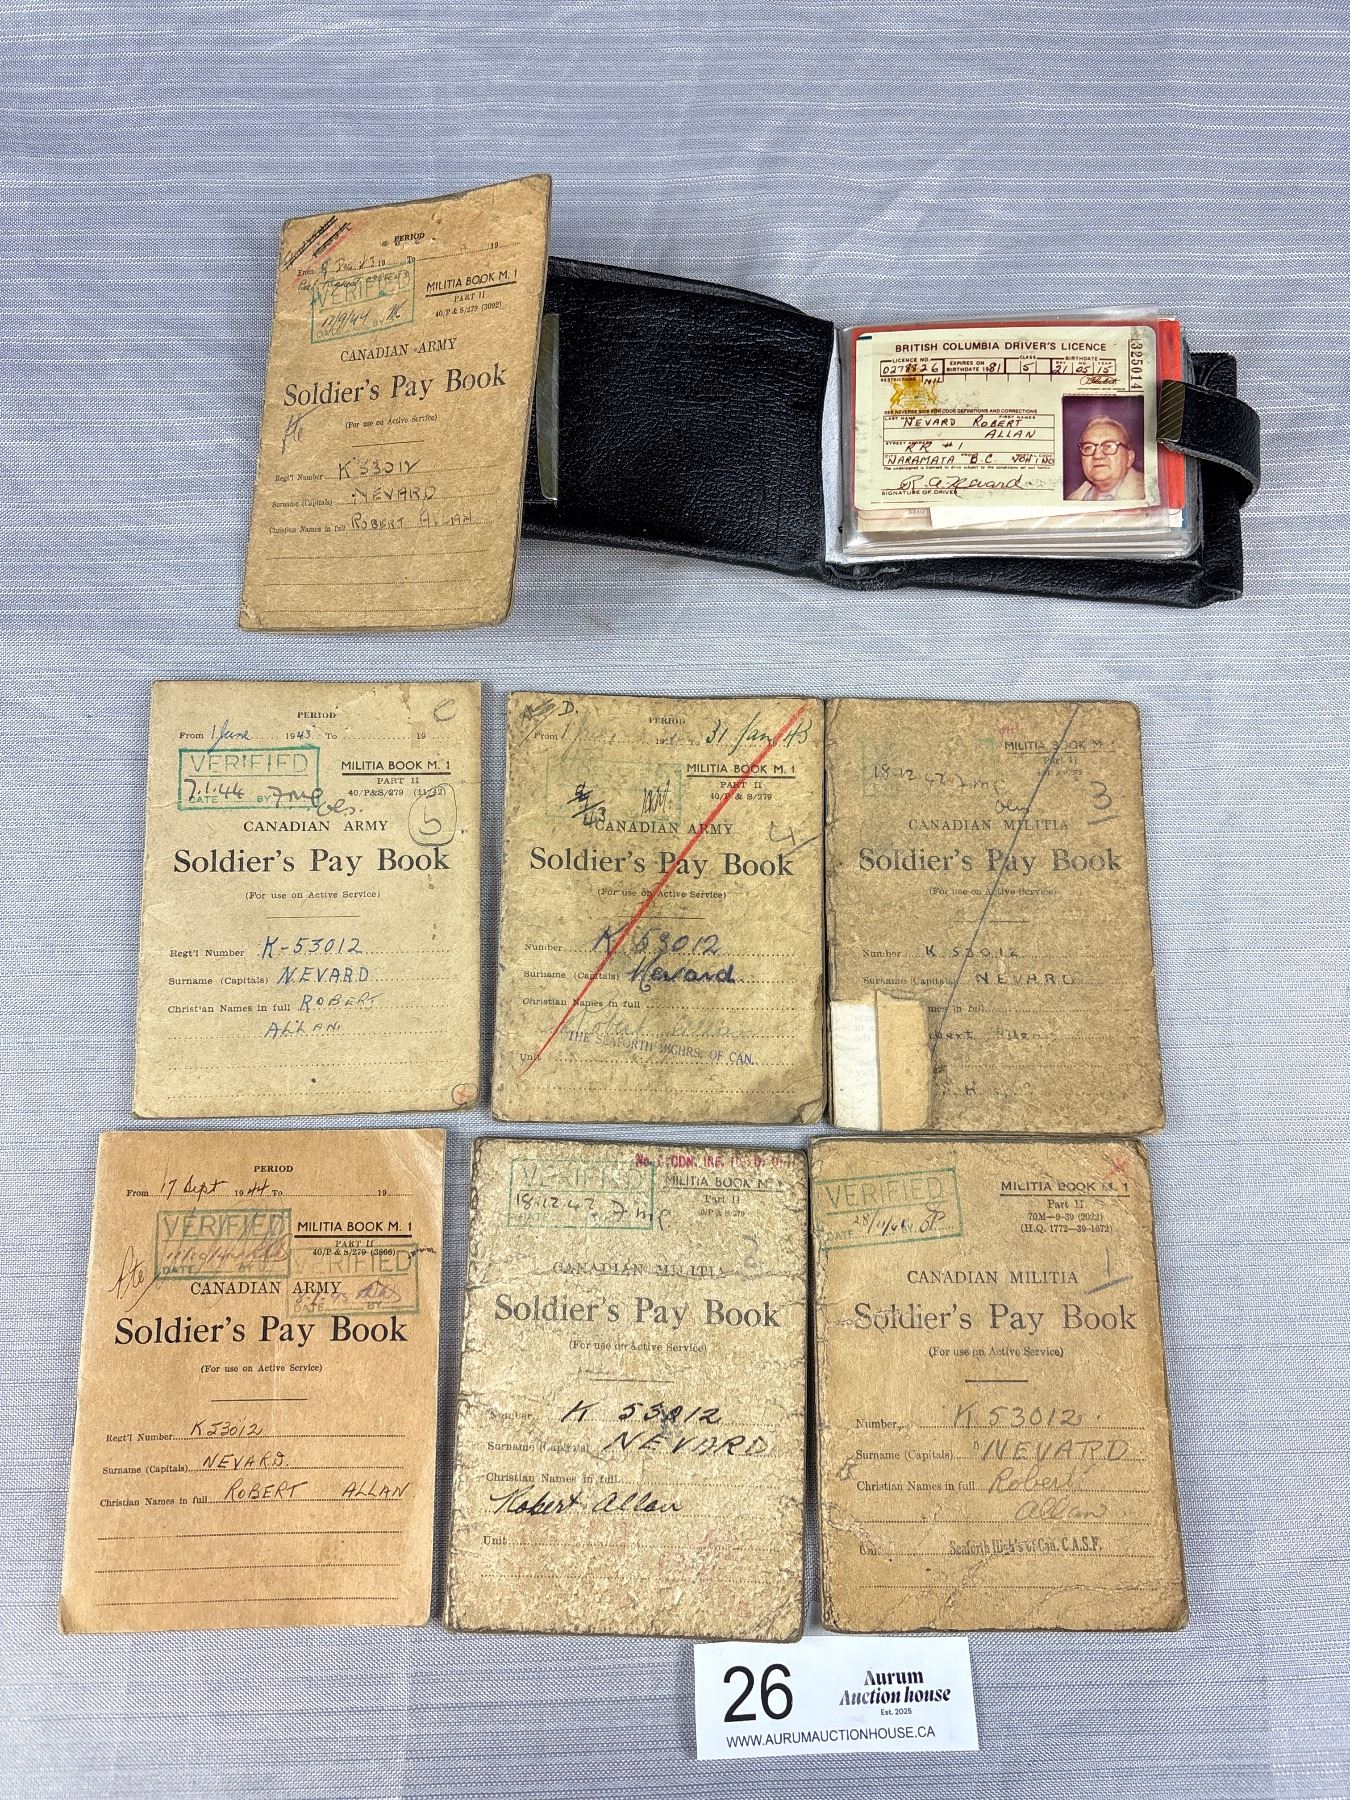 PERIOD
From 9 Dec 43 19 To 19
VERIFIED
12/9/44
DATE BY
MILITIA BOOK M. 1
PART II
40/P & S/279 (3092)
CANADIAN ARMY
Soldier's Pay Book
(For use on Active Service)
Regt'l Number K 53012
Surname (Capitals) NEVARD
Christian Names in full ROBERT ALLAN
BRITISH COLUMBIA DRIVER'S LICENCE
LICENCE NO. EXPIRES ON BIRTHDATE 1981 CLASS BIRTHDATE DAY MO. YEAR
0278826 5 21 05 15
RESTRICTIONS
325014
SEE REVERSE SIDE FOR CODE DEFINITIONS AND CORRECTIONS
LAST NAME FIRST NAMES
NEVARD ROBERT
ALLAN
STREET ADDRESS
RR #1
NARAMATA B.C. V0H 1N0
R. A. Nevard
SIGNATURE OF DRIVER
PERIOD
From 1 June 1943 To 19
VERIFIED
7.1.44
DATE BY
MILITIA BOOK M. 1
PART II
40/P&S/279 (11/42)
5
CANADIAN ARMY
Soldier's Pay Book
(For use on Active Service)
Regt'l Number K-53012
Surname (Capitals) NEVARD
Christian Names in full ROBERT
ALLAN
PERIOD
From 1 To 31 Jan 43
MILITIA BOOK M. 1
PART II
40/P & S/279
4
CANADIAN ARMY
Soldier's Pay Book
(For use on Active Service)
Number K 53012
Surname (Capitals) Nevard
Christian Names in full
Robert Allan
Unit THE SEAFORTH HIGHRS. OF CAN.
18-12-42
MILITIA BOOK M. 1
Part II
40/P & S/279
3
CANADIAN MILITIA
Soldier's Pay Book
(For use on Active Service)
Number K 53012
Surname (Capitals) NEVARD
in full
PERIOD
From 17 Sept 1944 To 19
VERIFIED
DATE BY
MILITIA BOOK M. 1
PART II
40/P & S/279 (3866)
DATE BY
CANADIAN ARMY
Soldier's Pay Book
(For use on Active Service)
Regt'l Number K53012
Surname (Capitals) NEVARD
Christian Names in full ROBERT ALLAN
VERIFIED
18-12-42
DATE
MILITIA BOOK M. 1
Part II
40/P & S/279
2
CANADIAN MILITIA
Soldier's Pay Book
(For use on Active Service)
Number K 53012
Surname (Capitals) NEVARD
Christian Names in full
Robert Allan
Unit
VERIFIED
DATE
MILITIA BOOK M. 1
Part II
70M—9-39 (2022)
(H.Q. 1772—39-1672)
1
CANADIAN MILITIA
Soldier's Pay Book
(For use on Active Service)
Number K 53012
Surname (Capitals) NEVARD
Christian Names in full Robert
Allan
Unit Seaforth High's of Can. C.A.S.F.
26
Aurum
Auction house
Est. 2025
WWW.AURUMAUCTIONHOUSE.CA